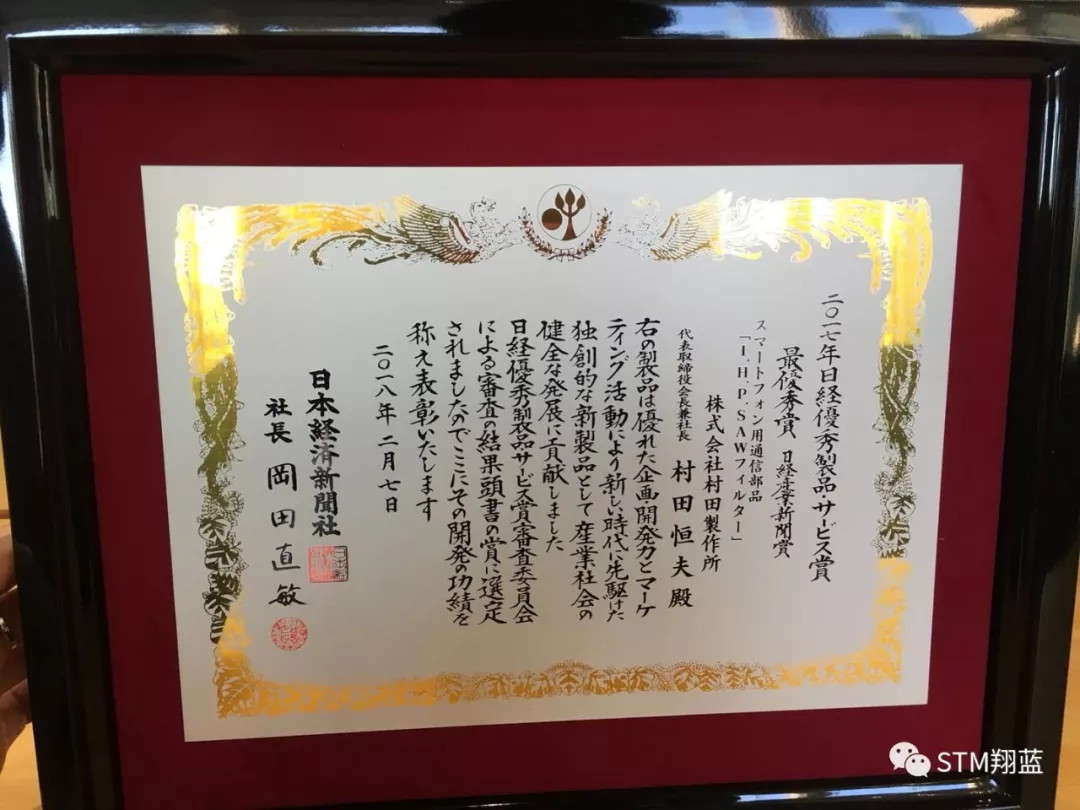 二〇一七年日経優秀製品・サービス賞
最優秀賞 日経産業新聞賞
スマートフォン用通信部品
「I.H.P.SAWフィルター」
株式会社村田製作所
代表取締役会長兼社長 村田恒夫殿
右の製品は優れた企画・開発力とマーケ
ティング活動により新しい時代に先駆けた
独創的な新製品として産業社会の
健全な発展に貢献しました
日経優秀製品サービス賞審査委員会
による審査の結果頭書の賞に選定
されましたのでここにその開発の功績を
称え表彰いたします
二〇一八年二月七日
日本経済新聞社
社長 岡田直敏
STM翔蓝